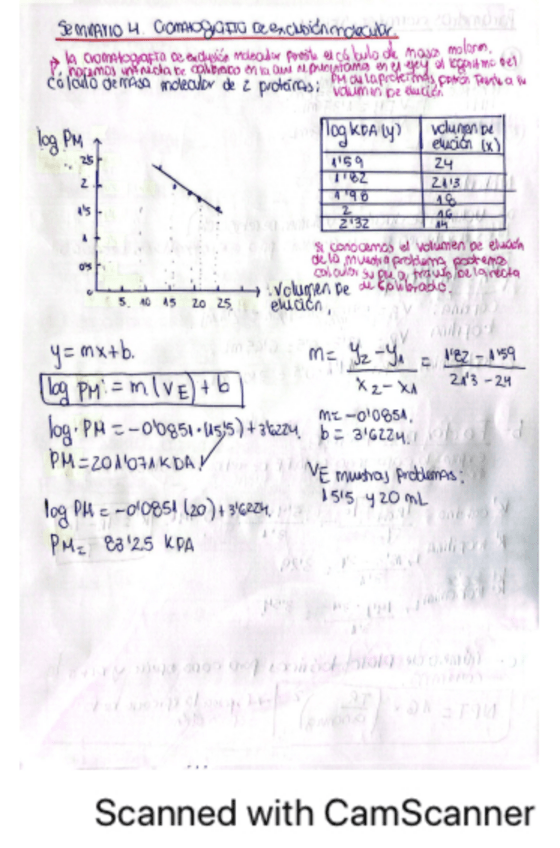 SEMINARIO 4. Cromatografía de exclusión molecular.
→ la cromatografía de exclusión molecular permite el cálculo de masas molares.
P, hacemos una recta de calibrado en la que representamos en el eje y el logaritmo del
cálculo de masa molecular de 2 proteínas: PM de la proteína patrón frente a su
volumen de elución.
log PM
2'5
2
1'5
0'5
0
5 10 15 20 25
volumen de
elución.
log KDA (y) volumen de elución (x)
1'59 24
1'82 21'3
1'98 18
2 16
2'32 14
Si conocemos el volumen de elución
de la muestra problema podremos
calcular su pm a través de la recta
de calibrado.
y = mx + b.
log PM = m (VE) + b
log PM = -0'0851 · (15'5) + 3'6224.
PM = 201'071 KDA ✓
log PM = -0'0851 (20) + 3'6224.
PM = 83'25 KDA
m = y2 - y1 / x2 - x1 = 1'82 - 1'59 / 21'3 - 24
m = -0'0851.
b = 3'6224.
VE muestras problemas:
15'5 y 20 mL
Scanned with CamScanner